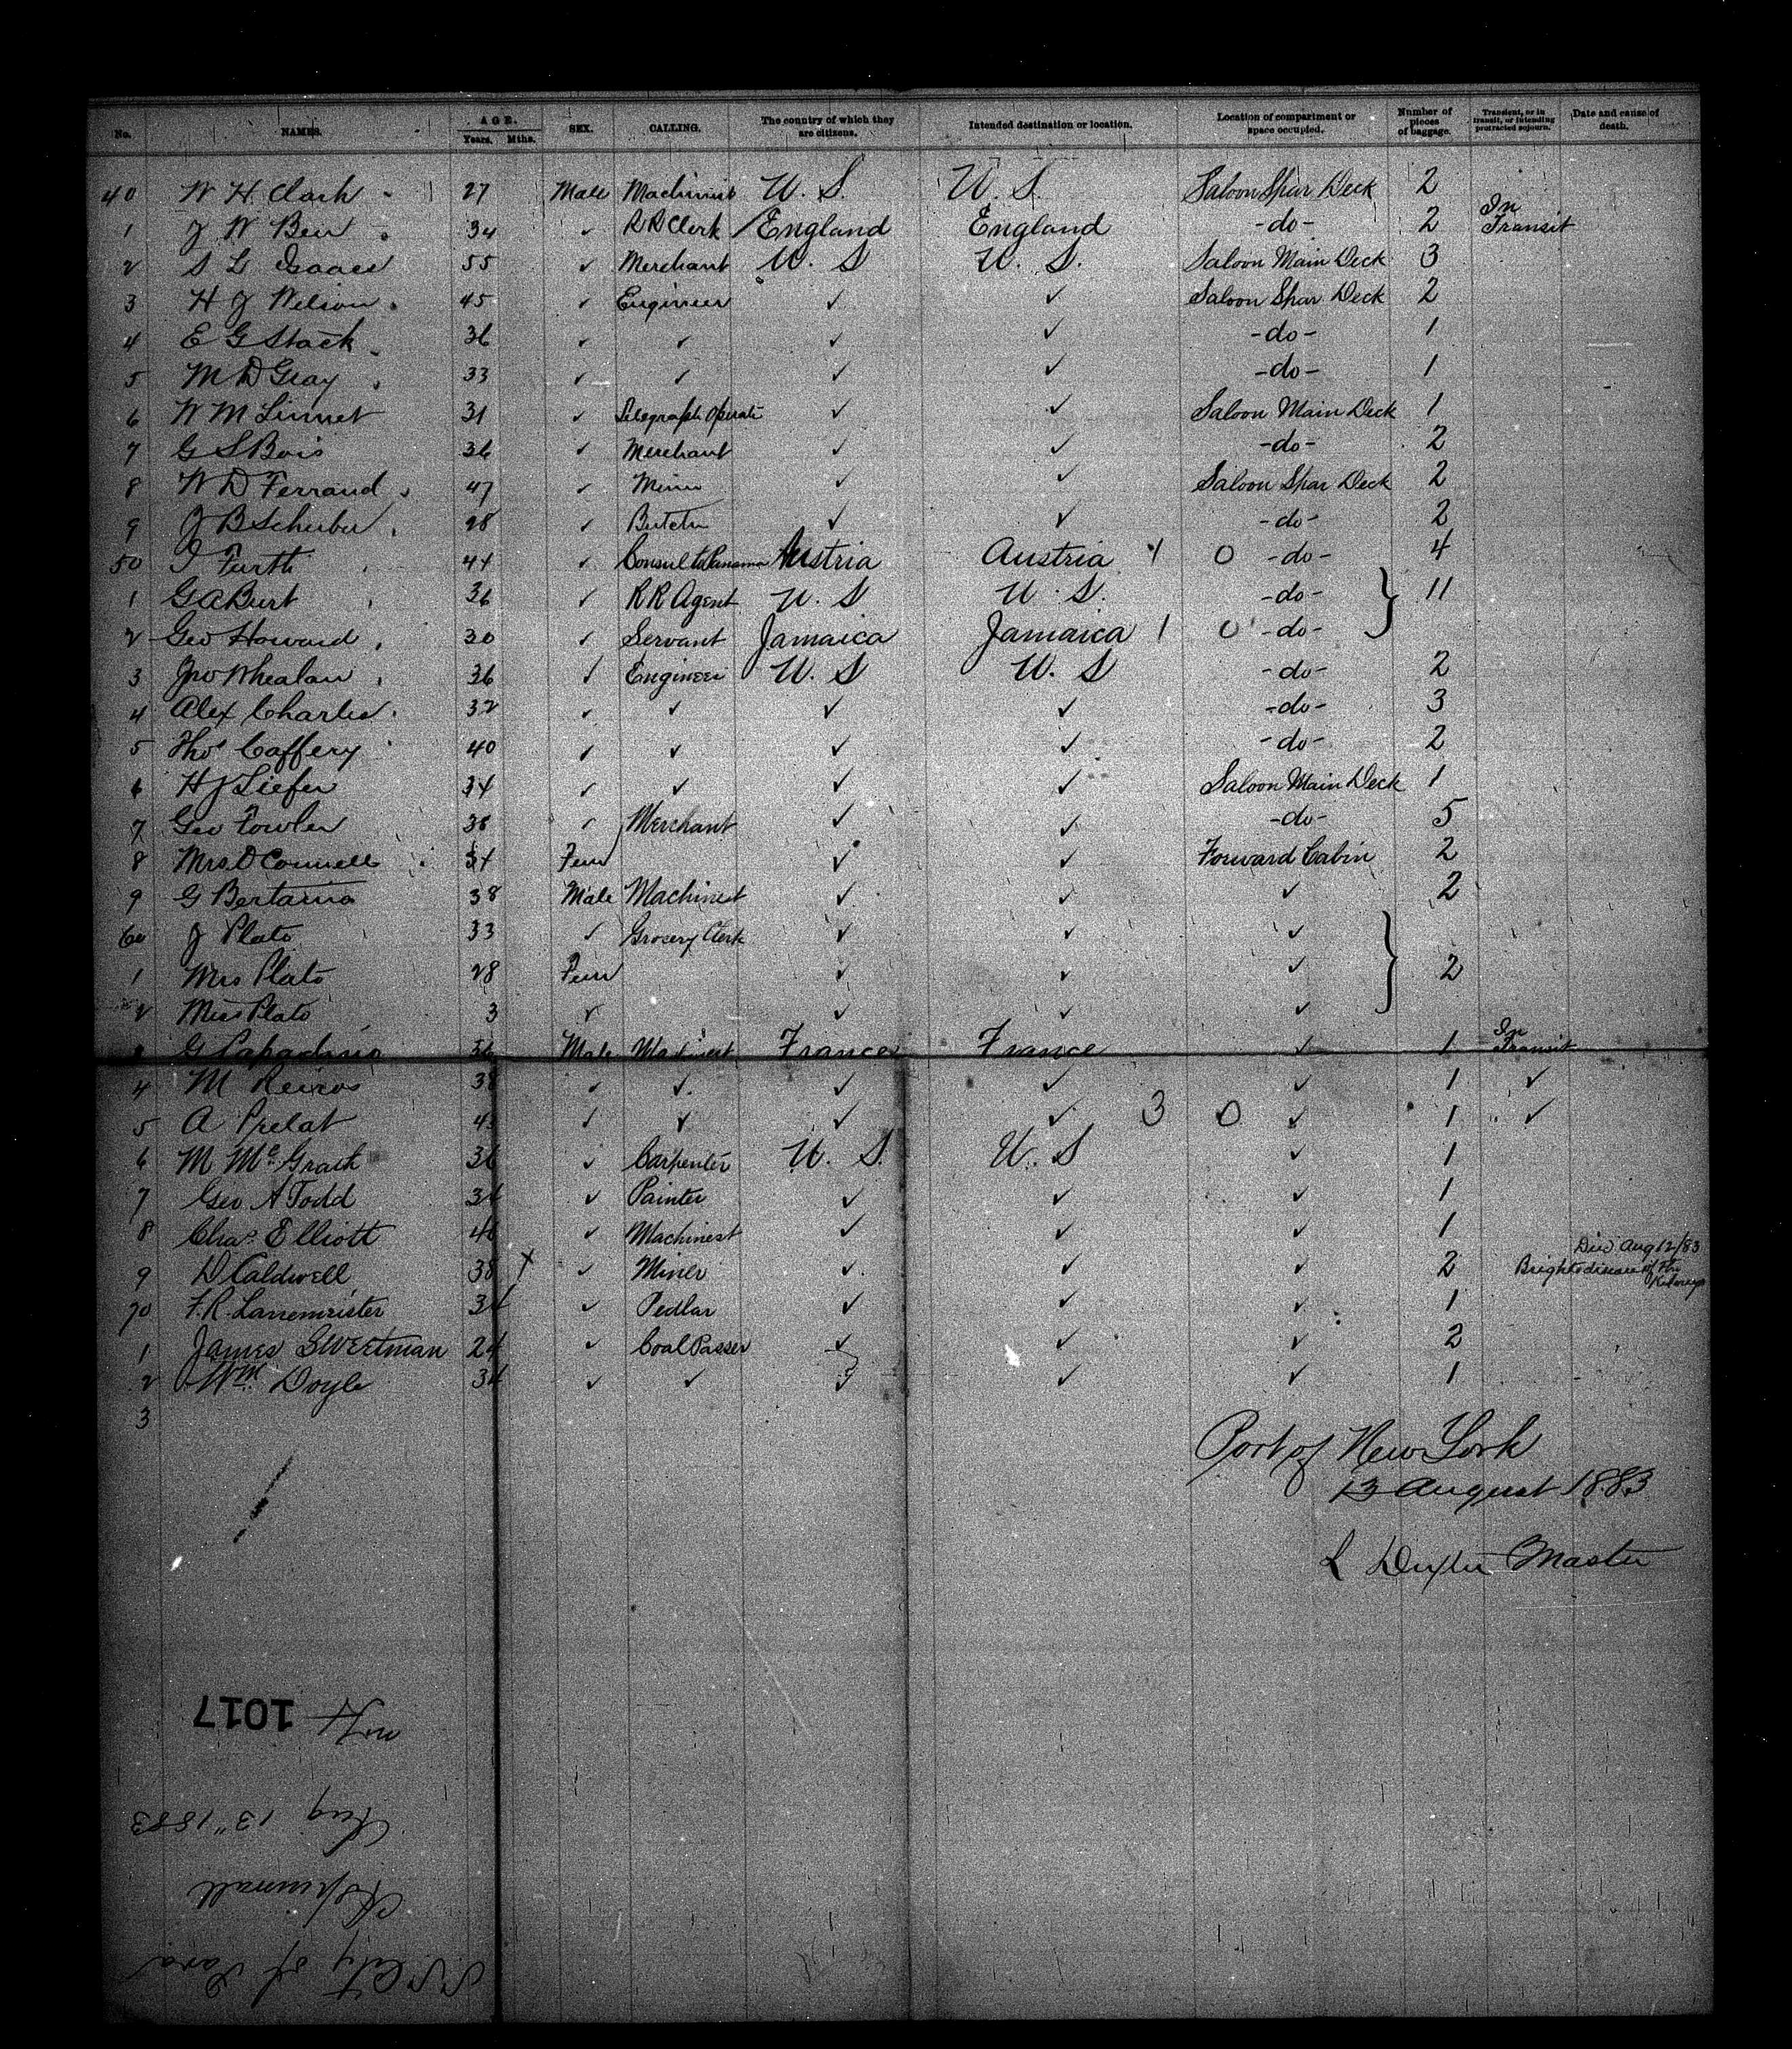 No. NAMES. AGE. Years. Mths. SEX. CALLING. The country of which they are citizens. Intended destination or location. Location of compartment or space occupied. Number of pieces of baggage. Transient, or in transit, or intending protracted sojourn. Date and cause of death.
40 W H Clark 27 Male Machinist U. S. U. S. Saloon Spar Deck 2
1 J W Ben 34 ✓ RR Clerk England England -do- 2 In Transit
2 S L Isaacs 55 ✓ Merchant U. S U. S. Saloon Main Deck 3
3 H J Wilson 45 ✓ Engineer ✓ ✓ Saloon Spar Deck 2
4 E G Stack 36 ✓ ✓ ✓ ✓ -do- 1
5 M D Gray 33 ✓ ✓ ✓ ✓ -do- 1
6 W M Linnet 31 ✓ Telegraph Operato ✓ ✓ Saloon Main Deck 1
7 G S Bois 36 ✓ Merchant ✓ ✓ -do- 2
8 W D Ferraud 47 ✓ Miner ✓ ✓ Saloon Spar Deck 2
9 J B Schuber 28 ✓ Butcher ✓ ✓ -do- 2
50 I Furth 44 ✓ Consul to Panama Austria Austria 1 0 -do- 4
1 G A Burt 36 ✓ RR Agent U. S U. S. -do- } 11
2 Geo Howard 30 ✓ Servant Jamaica Jamaica 1 0 -do-
3 Jno Whealan 36 ✓ Engineer U. S U. S -do- 2
4 Alex Charles 32 ✓ ✓ ✓ ✓ -do- 3
5 Thos Caffery 40 ✓ ✓ ✓ ✓ -do- 2
6 H J Liefer 34 ✓ ✓ ✓ ✓ Saloon Main Deck 1
7 Geo Fowler 38 ✓ Merchant ✓ ✓ -do- 5
8 Mrs O Connell 34 Fem ✓ ✓ Forward Cabin 2
9 G Bertaina 38 Male Machinest ✓ ✓ ✓ 2
60 J Plato 33 ✓ Grocery Clerk ✓ ✓ ✓
1 Mrs Plato 28 Fem ✓ ✓ ✓ } 2
2 Miss Plato 3 ✓ ✓ ✓ ✓
3 G 36 Male Machinest France France ✓ 1 In Transit
4 M Reiros 38 ✓ ✓ ✓ ✓ ✓ 1 ✓
5 A Prelat 43 ✓ ✓ ✓ ✓ 3 0 ✓ 1 ✓
6 M Mc Grath 36 ✓ Carpenter U. S. U. S ✓ 1
7 Geo A Todd 34 ✓ Painter ✓ ✓ ✓ 1
8 Chas Elliott 46 ✓ Machinest ✓ ✓ ✓ 1
9 D Caldwell 38 X ✓ Miner ✓ ✓ ✓ 2 Died Aug 12/83 Brights disease of the Kidneys
70 F. R. Lannemeister 34 ✓ Pedlar ✓ ✓ ✓ 1
1 James Swertman 24 ✓ Coal Passer ✓ ✓ ✓ 2
2 Wm Doyle 34 ✓ ✓ ✓ ✓ ✓ 1
3
Port of New York
13 August 1883
L Dexter Master
1017
Aug 13" 1883
Aspinwall
SS City of Para